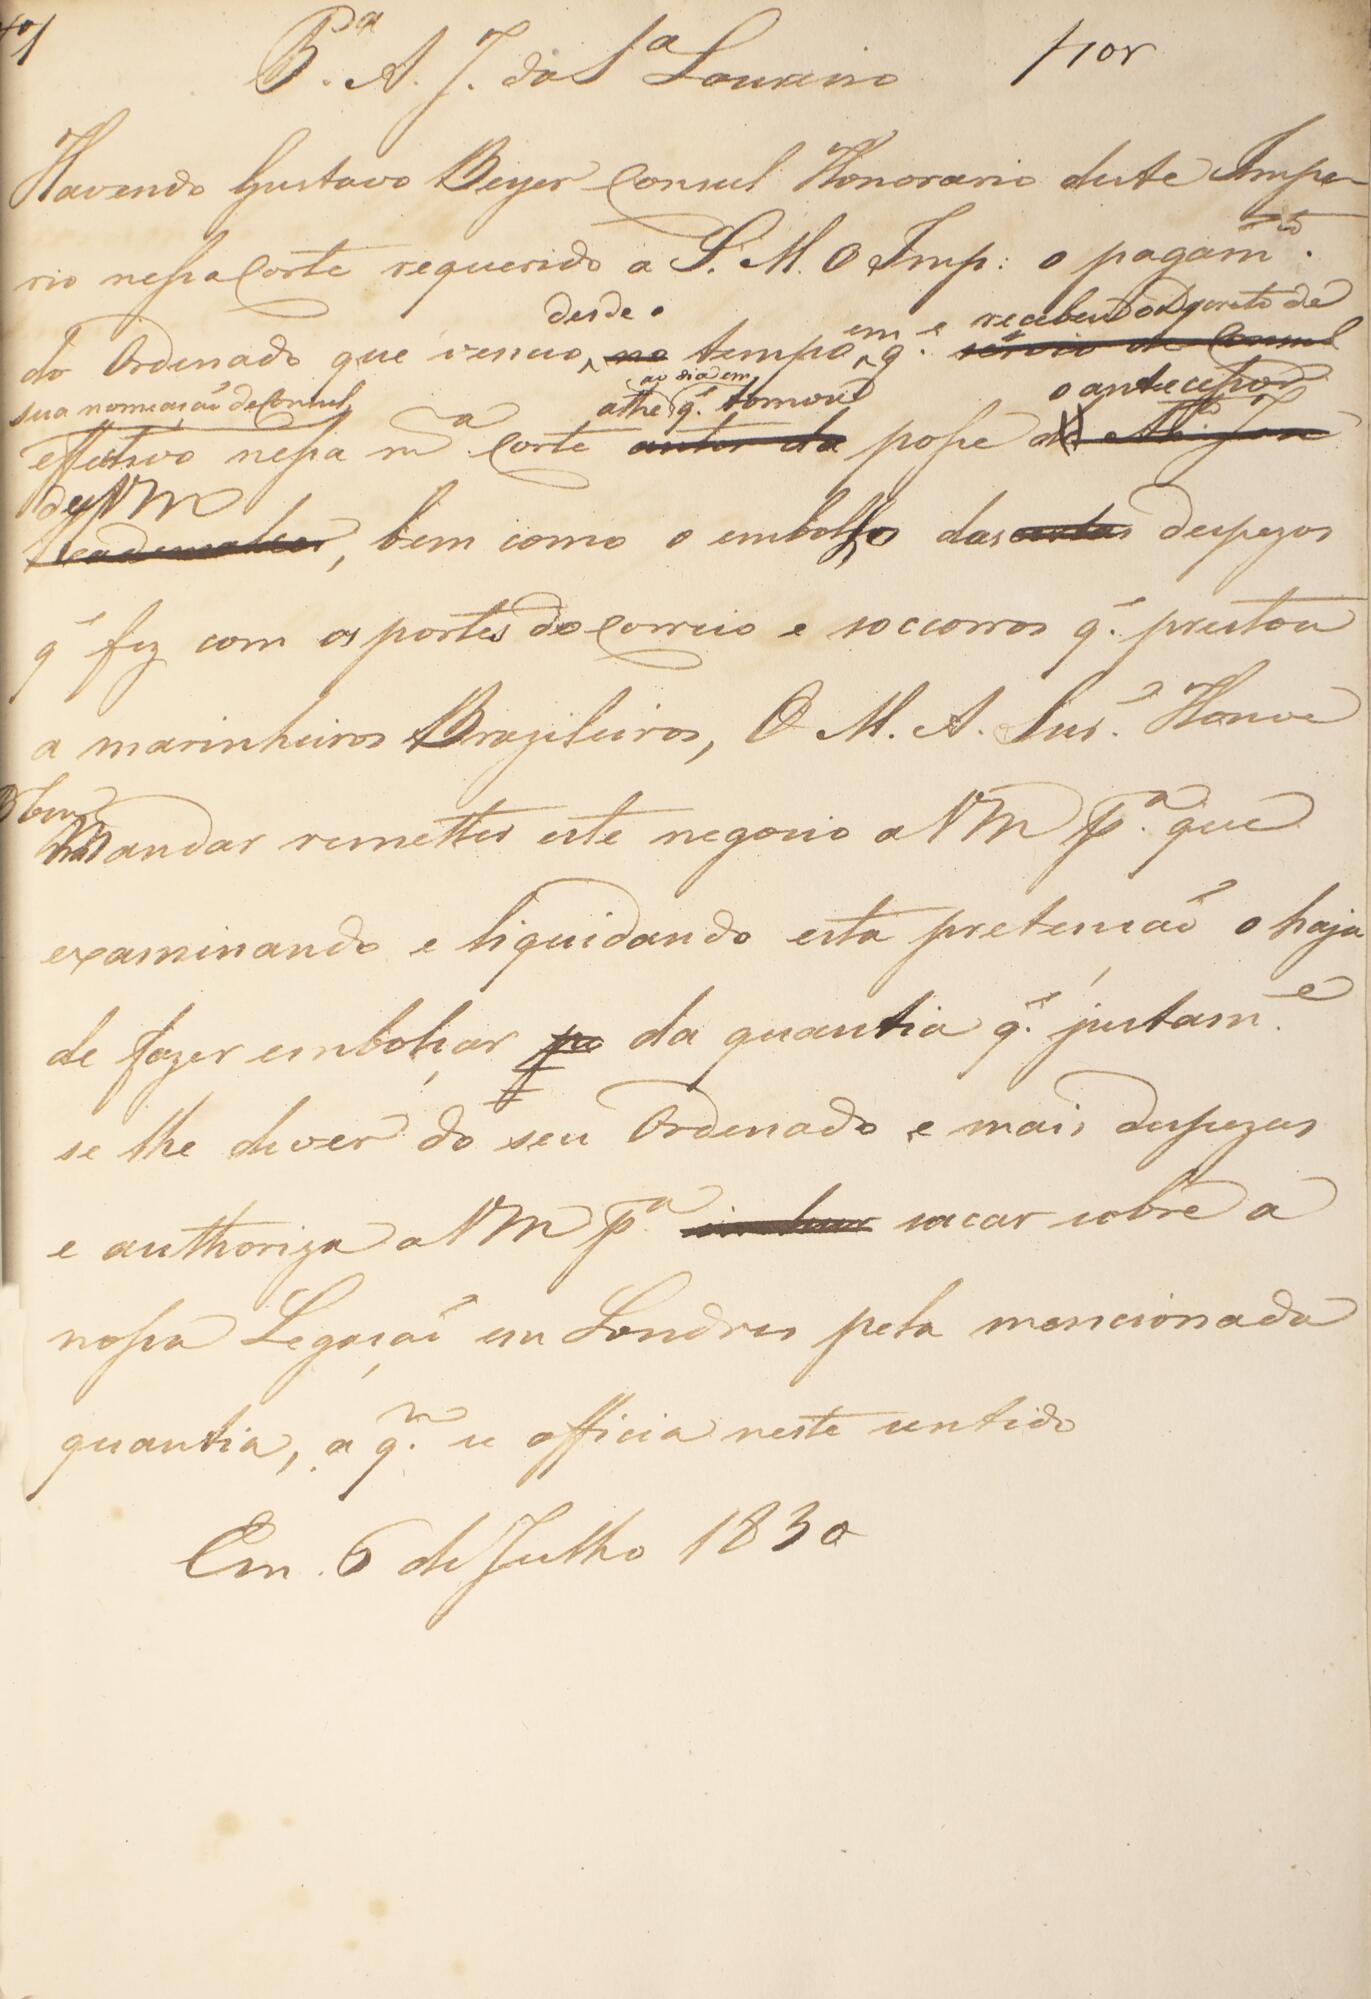 Pª A. J. da Sª Loureiro
Havendo Gustavo Beyer Consul Honorario deste Impe-
rio nessa Corte requerido a S. M. O Imp: o pagamto.
desde o em recebeu o Decreto de
do Ordenado que venceo, no tempo q.e servio de Consul
sua nomeação de Consul athe ao dia em q.e tomou o antecessor
effectivo nessa mª Corte antes da posse
de VM
bem como o embolso das despezas
q.e fez com os portes do Correio e soccorros q.e prestou
a marinheiros Brazileiros, O M. A. Sr. Houve
bem
Mandar remetter este negocio a VM pª que
examinando e liquidando esta pretenção o haja
de fazer embolçar da quantia q.e justam.e
se lhe dever do seu Ordenado e mais despezas
e authoriza a VM pª sacar sobre a
nossa Legação em Londres pela mencionada
quantia, a q.m se officia neste sentido
Em 6 de Julho 1830